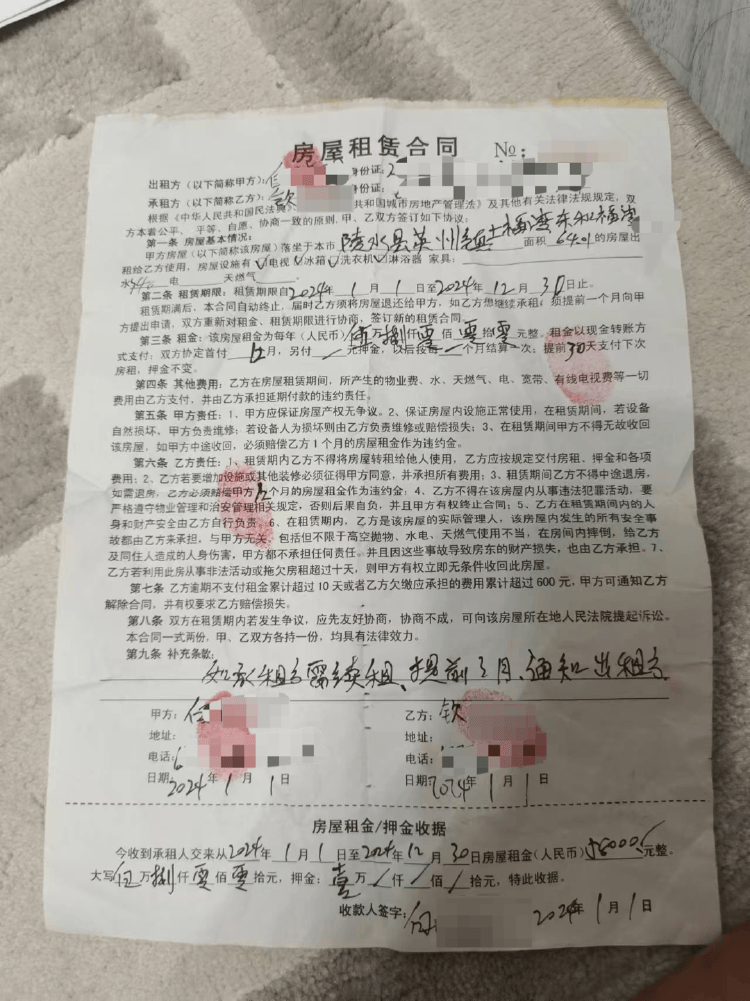 房屋租赁合同 No:
出租方（以下简称甲方）: 身份证:
承租方（以下简称乙方）: 身份证:
根据《中华人民共和国民法典》 共和国城市房地产管理法》及其他有关法律法规规定，双
方本着公平、平等、自愿、协商一致的原则，甲、乙双方签订如下协议：
第一条 房屋基本情况：
甲方房屋（以下简称该房屋）落坐于本市 陵水县英州镇 面积 64.01 的房屋出
租给乙方使用，房屋设施有 ✓电视 ✓冰箱 ✓洗衣机 ✓淋浴器 家具：
水 电 天燃气
第二条 租赁期限：租赁期限自2024年1月1日至2024年12月30日止。
租赁期满后，本合同自动终止，届时乙方须将房屋退还给甲方，如乙方想继续承租，须提前一个月向甲
方提出申请，双方重新对租金、租赁期限进行协商，签订新的租赁合同。
第三条 租金：该房屋租金为每年（人民币）伍万捌仟零佰零拾零元整。租金以现金转账方
式支付：双方协定首付 月，另付 元押金，以后按每 个月结算一次；提前30天支付下次
房租，押金不变。
第四条 其他费用：乙方在房屋租赁期间，所产生的物业费、水、天燃气、电、宽带、有线电视费等一切
费用由乙方支付，并由乙方承担延期付款的违约责任。
第五条 甲方责任：1、甲方应保证房屋产权无争议。2、保证房屋内设施正常使用，在租赁期间，若设备
自然损坏、甲方负责维修；若设备人为损坏则由乙方负责维修或赔偿损失；3、在租赁期间甲方不得无故收回
该房屋，如甲方中途收回，必须赔偿乙方1个月的房屋租金作为违约金。
第六条 乙方责任：1、租赁期内乙方不得将房屋转租给他人使用，乙方应按规定交付房租、押金和各项
费用；2、乙方若要增加设施或其他装修必须征得甲方同意，并承担所有费用；3、租赁期间乙方不得中途退房，
如需退房，乙方必须赔偿甲方 个月的房屋租金作为违约金；4、乙方不得在该房屋内从事违法犯罪活动，要
严格遵守物业管理和治安管理相关规定，否则后果自负，并且甲方有权终止合同；5、乙方在租赁期间内的人
身和财产安全由乙方自行负责。6、在租赁期内，乙方是该房屋的实际管理人，该房屋内发生的所有安全事
故都由乙方来承担。与甲方无关，包括但不限于高空抛物、水电、天燃气使用不当，在房间内摔倒，给乙方
及同住人造成的人身伤害，甲方都不承担任何责任。并且因这些事故导致房东的财产损失，也由乙方承担。7、
乙方若利用此房从事非法活动或拖欠房租超过十天，则甲方有权立即无条件收回此房屋。
第七条 乙方逾期不支付租金累计超过10天或者乙方欠缴应承担的费用累计超过600元，甲方可通知乙方
解除合同，并有权要求乙方赔偿损失。
第八条 双方在租赁期内若发生争议，应先友好协商，协商不成，可向该房屋所在地人民法院提起诉讼。
本合同一式两份，甲、乙双方各持一份，均具有法律效力。
第九条 补充条款：
如承租方需续租、提前 月、通知出租方
甲方：任 乙方：钦
地址： 地址：
电话： 电话：
日期：2024年1月1日 日期：2024年1月1日
房屋租金/押金收据
今收到承租人交来从2024年1月1日至2024年12月30日房屋租金（人民币）58000元整。
大写伍万捌仟零佰零拾元，押金：壹万/仟/佰/拾元，特此收据。
收款人签字： 2024年1月1日